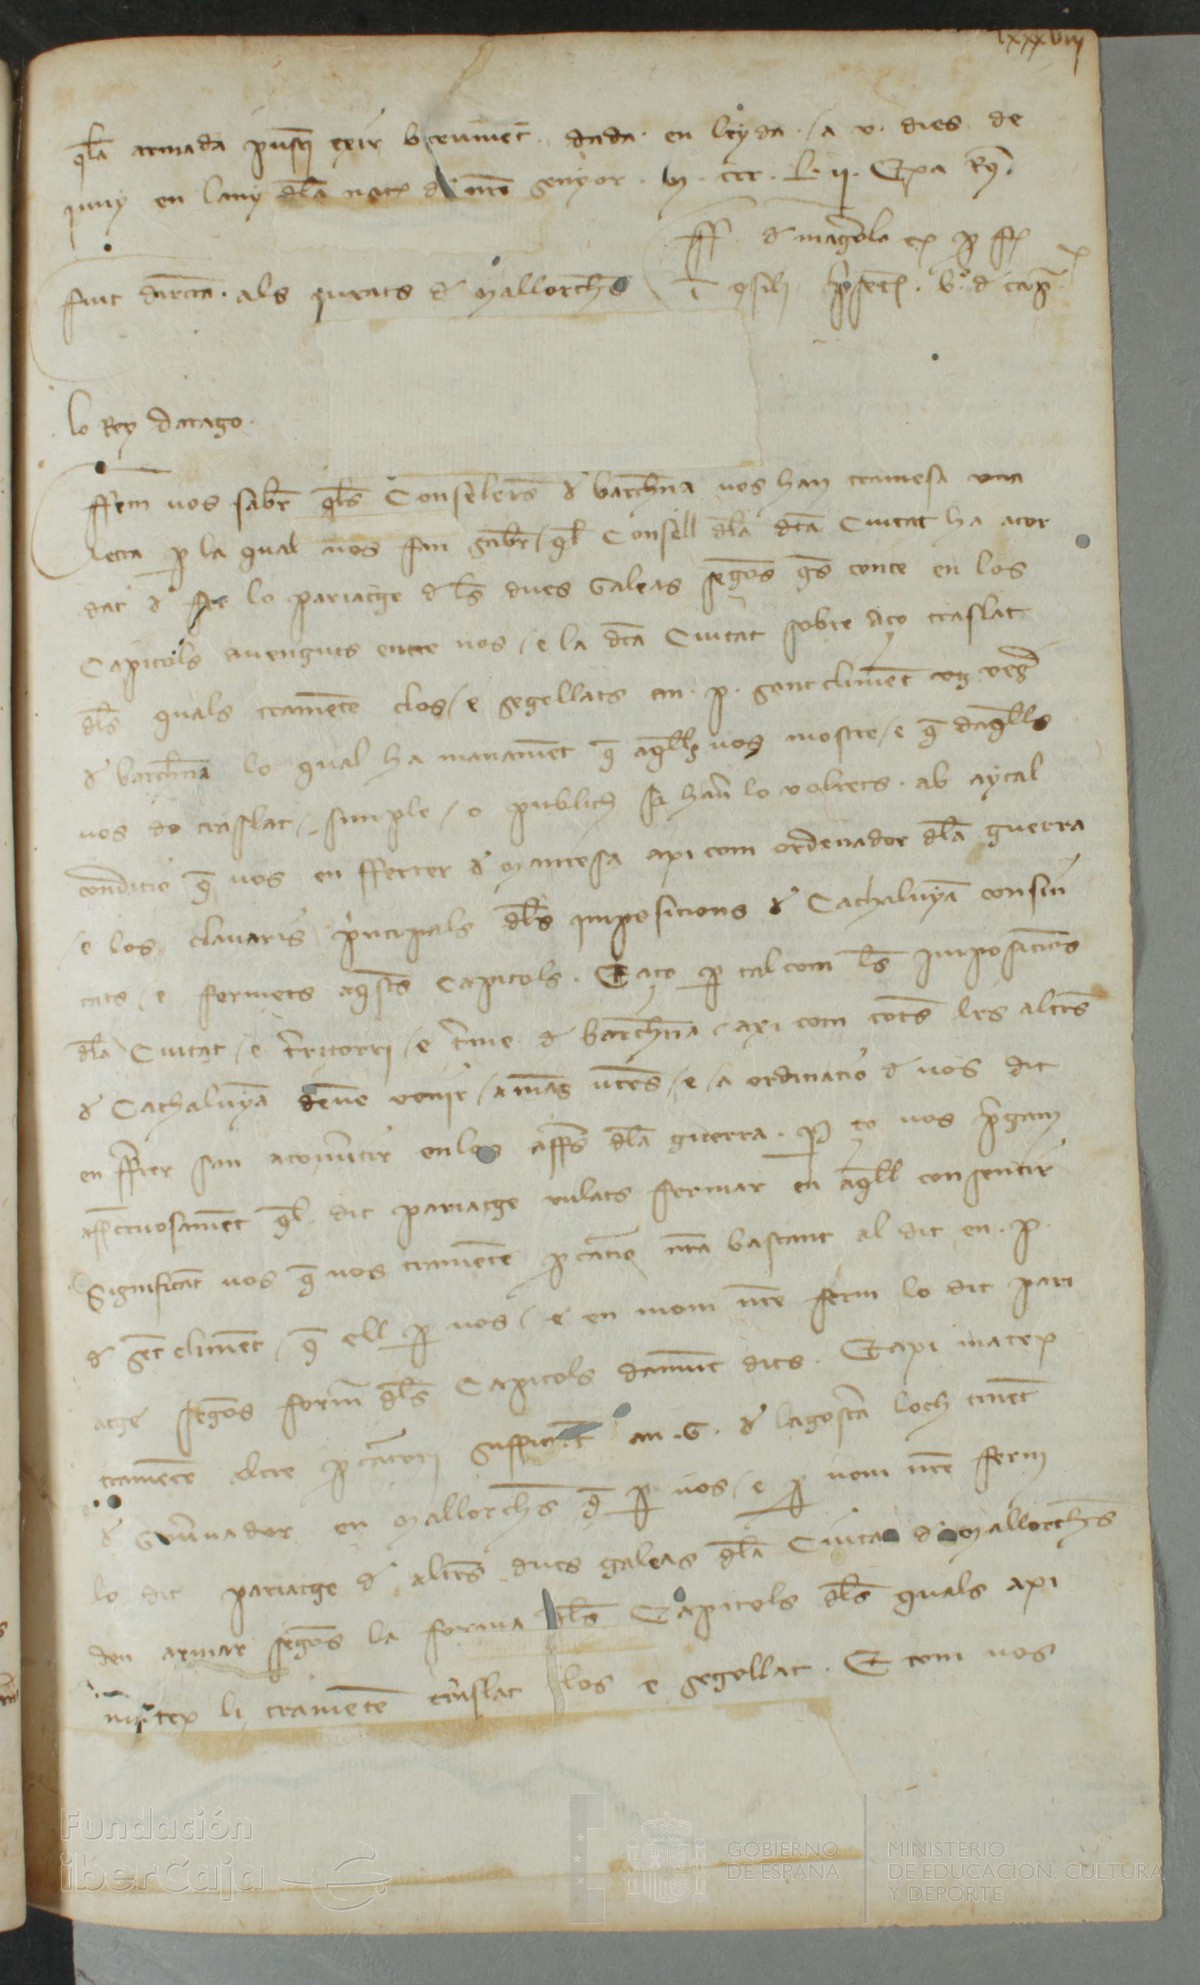 lxxxviij
q̃la armada pusq̃ exir breument. dada en leyda. a v. dies de
juny en lany dl̃a nat̃ de nr̃e senyor. M. ccc. L. ij. Exa Rꝯ.
fuit dir̃cta. als jurats de Mallorch̃s
lo Rey Darago.
ffem vos sabr̃ q̃ls Consellers de barch̃na nos han tramesa una
letra ꝑ la qual nos fan sabr̃ / q̃l Consell dl̃a dc̃a Ciutat ha acor
dat de fer lo pariatge de l̃s dues Galeas segõs q̃s conte en los
Capitols avenguts entre nos / e la dc̃a Ciutat sobre aço traslat
dl̃s quals trametẽ clos / e segellats an. p. sent climẽt
de barch̃na lo qual ha manamẽt q̃ aq̃lls vos mostre / e q̃ daq̃lls
vos do traslat / simple / o publich si hav̈lo volrets. ab aytal
condicio q̃ vos en fferrer de Manresa axi com ordenador dl̃a guerra
/ e los clavaris p̃ncipals dl̃s imposicions de Cathaluỹa consin
tats / e fermets aq̃sts Capitols. E aço ꝑ tal com l̃s imposiciõs
dl̃a Ciutat / e t̃ritorri / e t̃me de barch̃na / axi com totes les altr̃s
de Cathaluỹa deuẽ venir / a mãs vr̃es / e / a ordinacio de vos dit
en ffrer san a conṽtir en los affr̃s dl̃a guerra. ꝑ ço vos p̃gam
affectuosamẽt q̃l dit pariatge vulats fermar en aq̃ll consentir
Significãt vos q̃ nos trametẽ ꝓcacio nr̃a bastant al dit en. p.
de sẽt climẽt / q̃ ell ꝑ nos / e en nom nr̃e ferm lo dit pari
atge segõs form̃ dl̃s Capitols damũt dits. E axi matex
trametẽ altre ꝓcaciõ sufficiẽt an. G. de lagost̃a loch tinẽt
de Goṽnador en Mallorch̃s q̃ ꝑ nos / e ꝑ nom nr̃e ferm
lo dit pariatge de altr̃s dues galeas dl̃a Ciutat de Mallorch̃s
den armar segõs la forma dl̃s Capitols dl̃s quals axi
matex li trametẽ trãslat clos e segellat. E com nos
Fundación
iberCaja
GOBIERNO
DE ESPAÑA
MINISTERIO
DE EDUCACIÓN, CULTURA
Y DEPORTE